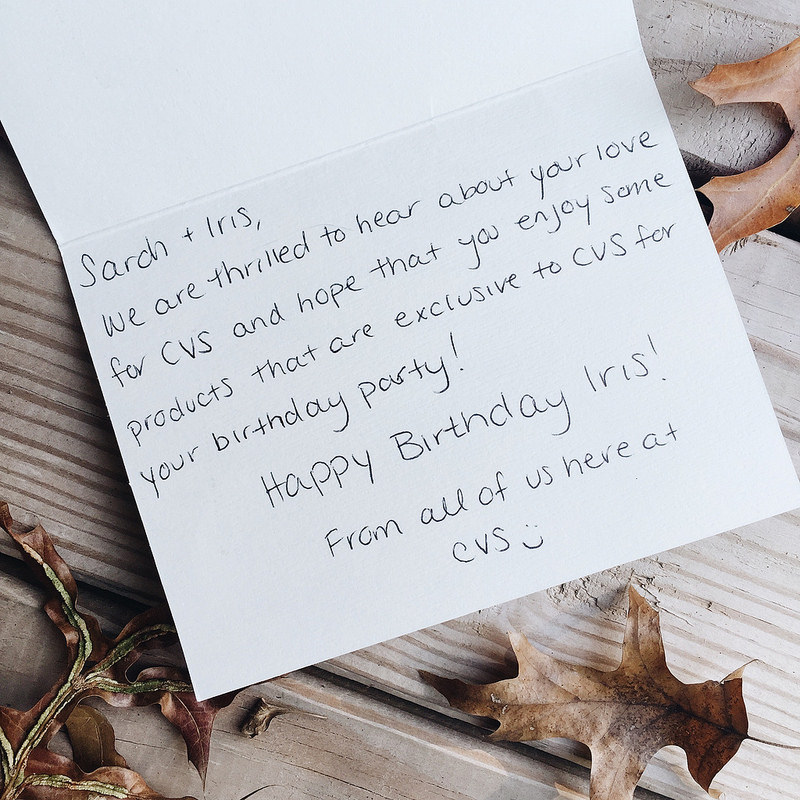 Sarah + Iris,
We are thrilled to hear about your love
for CVS and hope that you enjoy some
products that are exclusive to CVS for
your birthday party!
Happy Birthday Iris!
From all of us here at
CVS :)